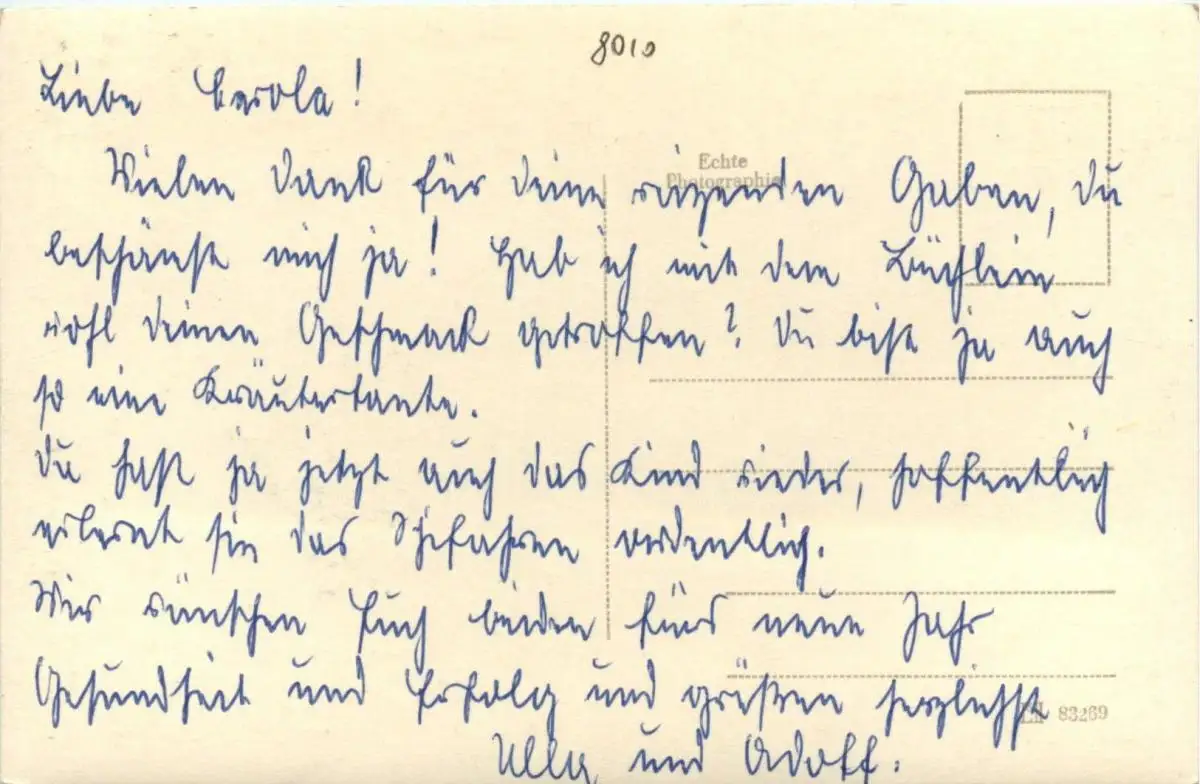 8010
Liebe Carola!
Echte
Photographie
Vielen Dank für deine reizenden Gaben, du
beschämst mich ja! Hab ich mit dem Büchlein
wohl deinen Geschmack getroffen? Du bist ja auch
so eine Kräutertante.
Du hast ja jetzt auch das Kind wieder, hoffentlich
erlernt sie das Schifahren ordentlich.
Wir wünschen Euch beiden fürs neue Jahr
Gesundheit und Erfolg und grüßen herzlichst
83269
Ulla und Adolf.